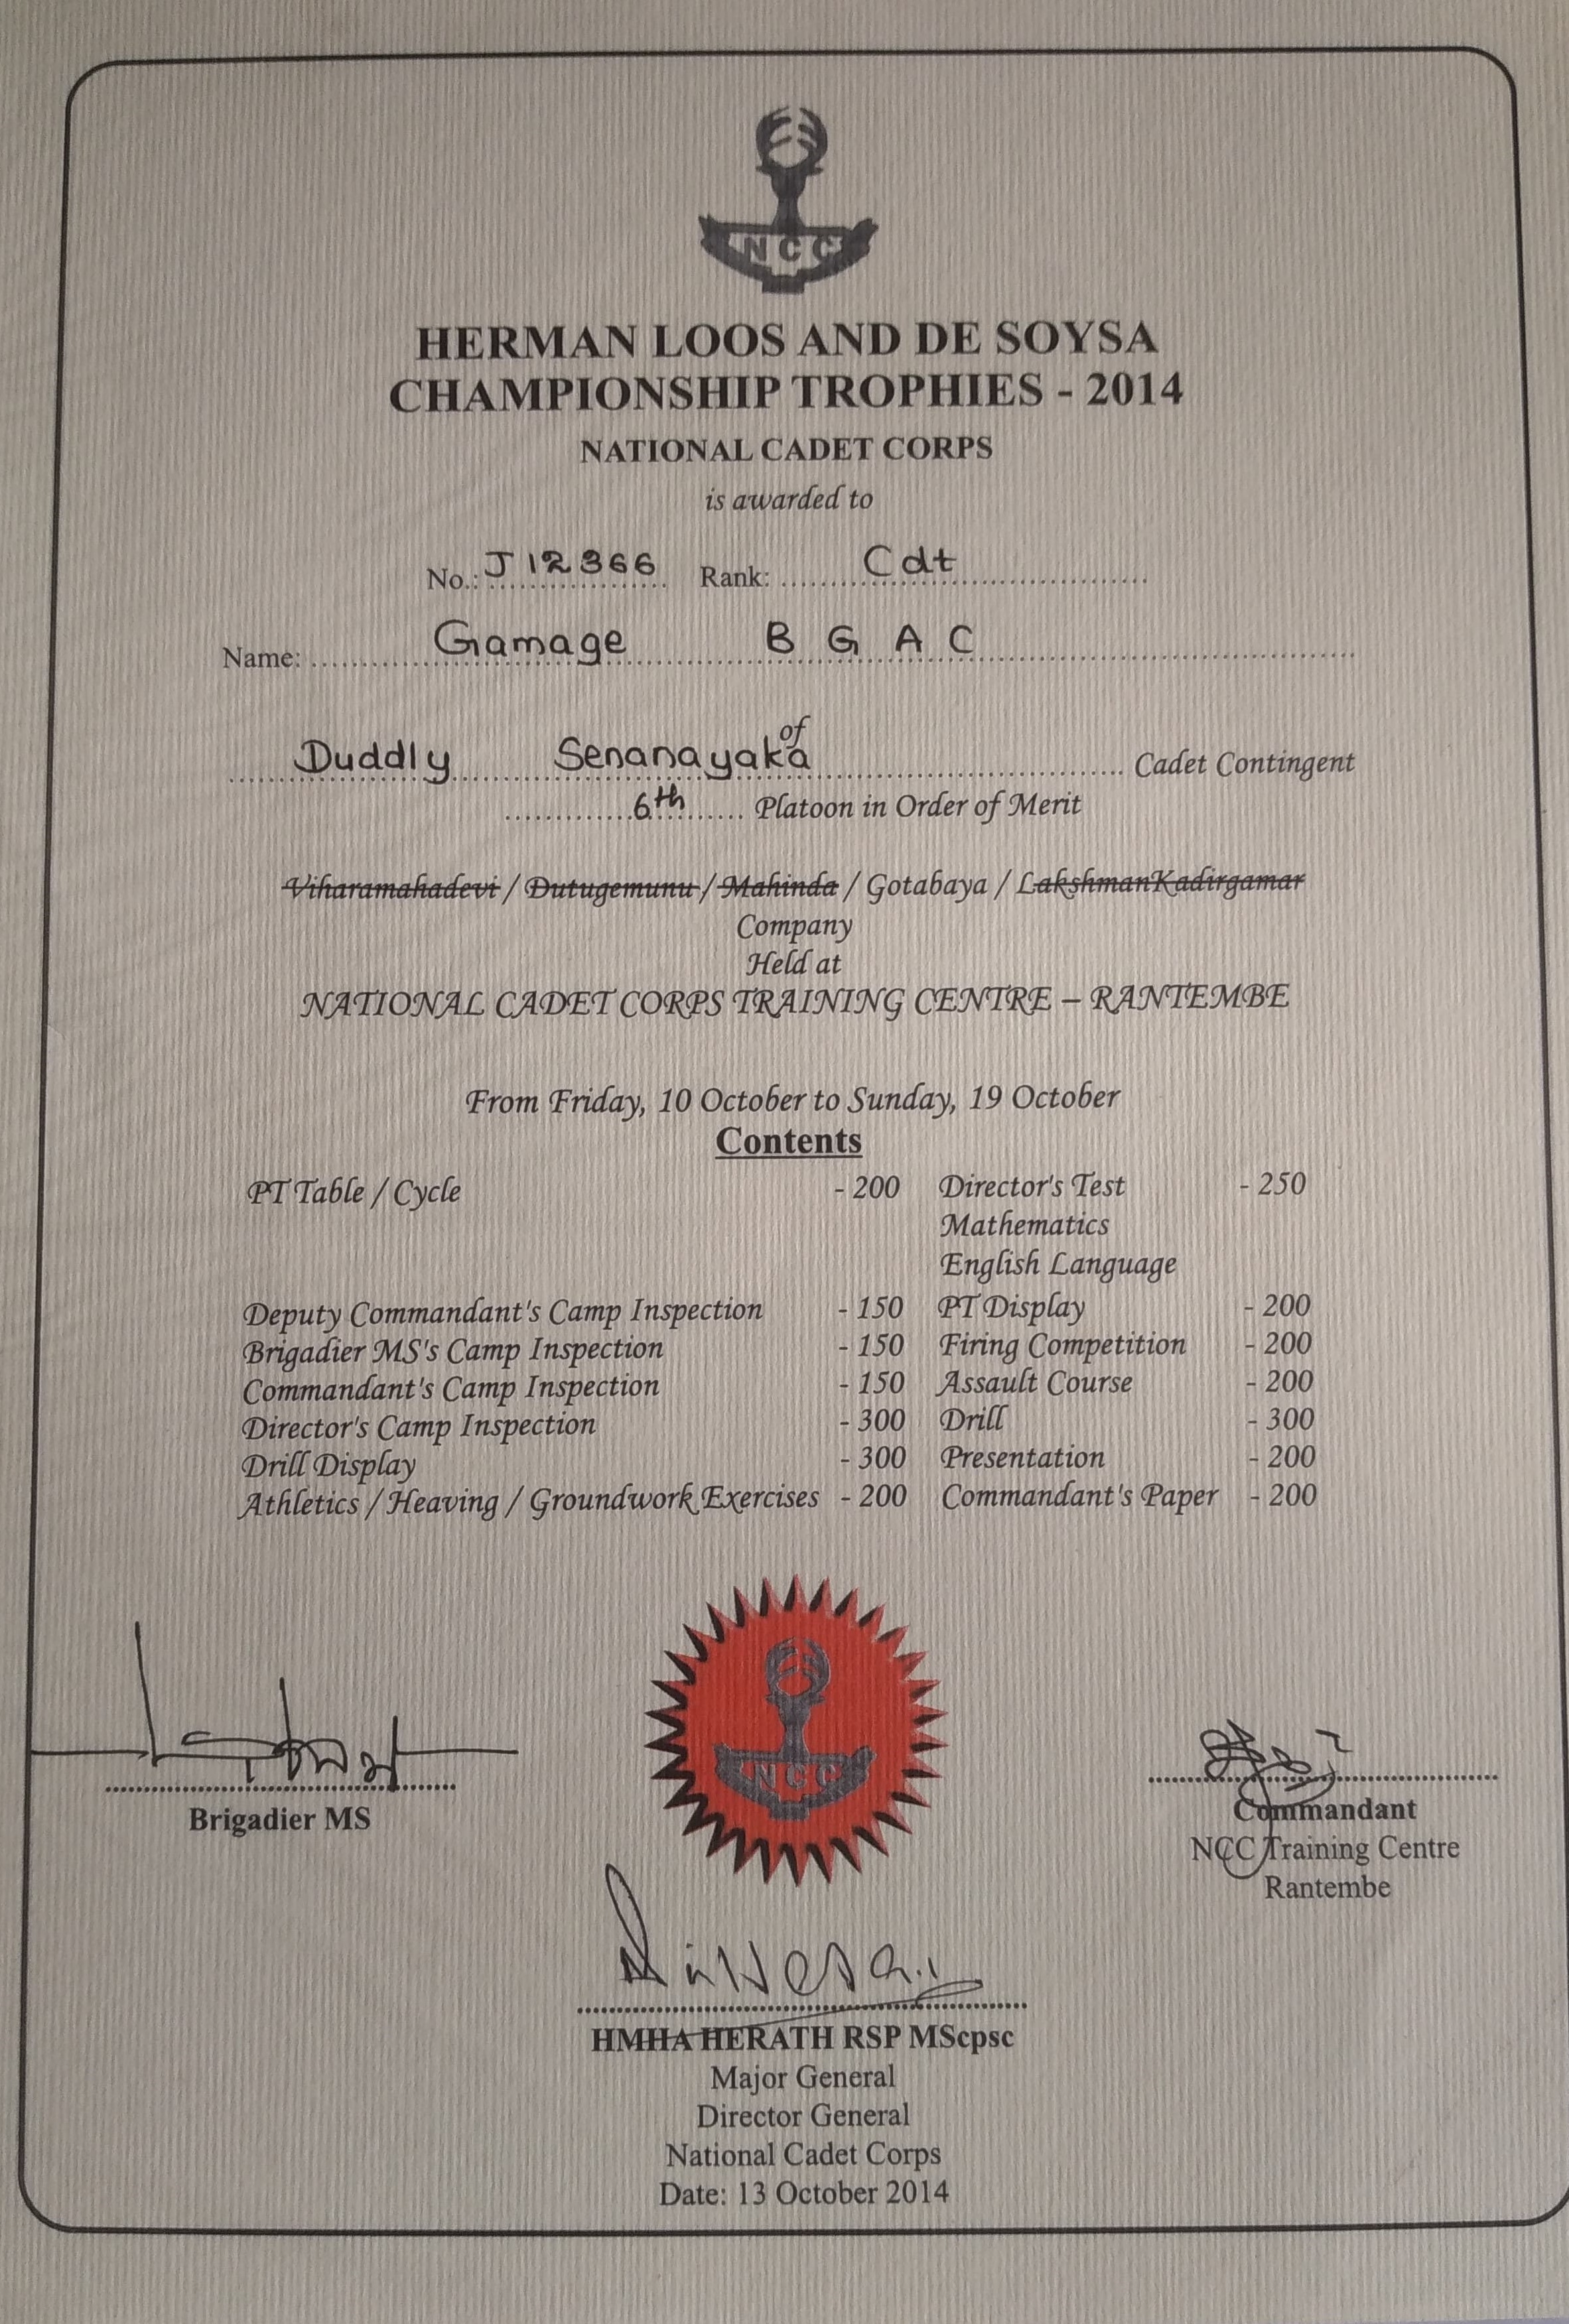 NCC
HERMAN LOOS AND DE SOYSA
CHAMPIONSHIP TROPHIES - 2014
NATIONAL CADET CORPS
is awarded to
No.: J 12366 Rank: Cdt
Name: Gamage B G A C
of
Duddly Senanayaka Cadet Contingent
6th Platoon in Order of Merit
Viharamahadevi / Dutugemunu / Mahinda / Gotabaya / LakshmanKadirgamar
Company
Held at
NATIONAL CADET CORPS TRAINING CENTRE – RANTEMBE
From Friday, 10 October to Sunday, 19 October
Contents
PT Table / Cycle - 200 Director's Test - 250
Mathematics
English Language
Deputy Commandant's Camp Inspection - 150 PT Display - 200
Brigadier MS's Camp Inspection - 150 Firing Competition - 200
Commandant's Camp Inspection - 150 Assault Course - 200
Director's Camp Inspection - 300 Drill - 300
Drill Display - 300 Presentation - 200
Athletics / Heaving / Groundwork Exercises - 200 Commandant's Paper - 200
NCC
Brigadier MS
Commandant
NCC Training Centre
Rantembe
HMHA HERATH RSP MScpsc
Major General
Director General
National Cadet Corps
Date: 13 October 2014